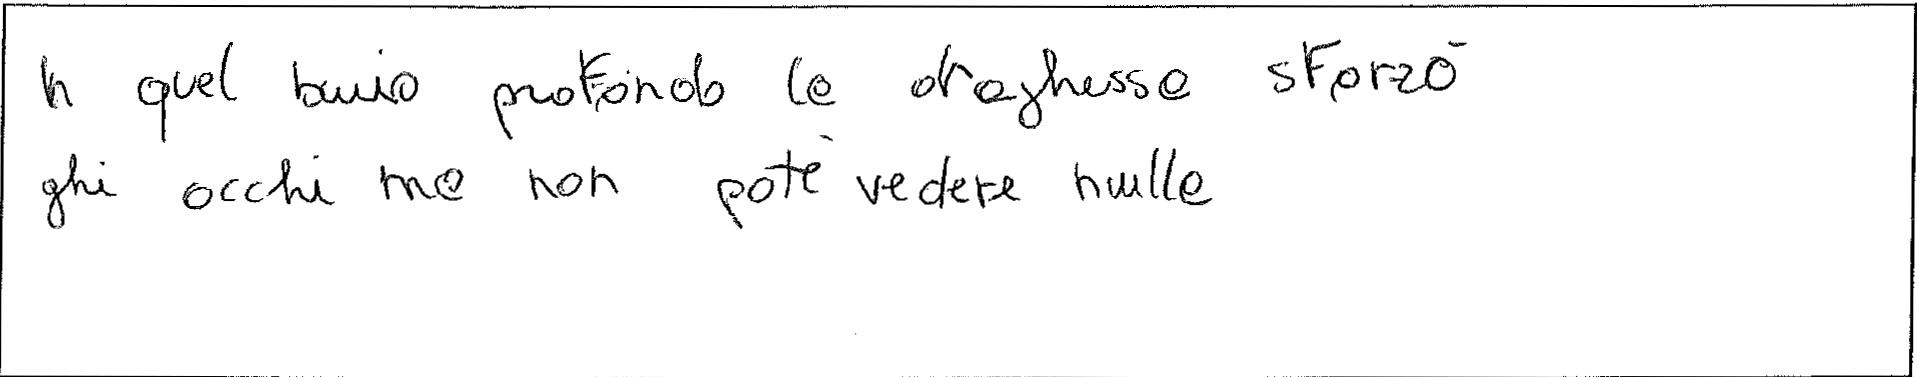 In quel buio profondo la draghessa sforzò
ghi occhi ma non potè vedere nulla